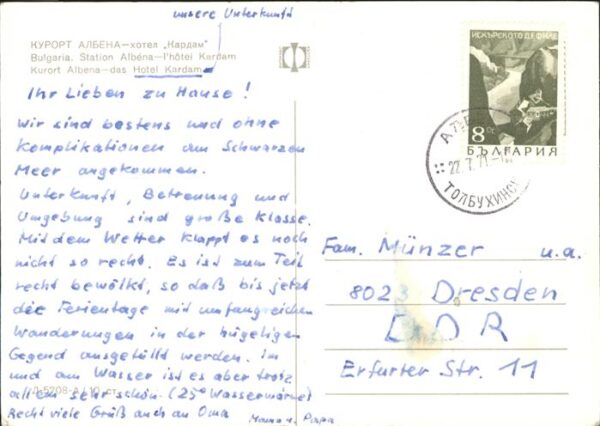 unsere Unterkunft
КУРОРТ АЛБЕНА—хотел „Кардам"
Bulgaria. Station Albéna—l'hôtel Kardam
Kurort Albena—das Hotel Kardam
Ihr Lieben zu Hause!
Wir sind bestens und ohne
Komplikationen am Schwarzen
Meer angekommen.
Unterkunft, Betreuung und
Umgebung sind große Klasse.
Mit dem Wetter klappt es noch
nicht so recht. Es ist zum Teil
recht bewölkt, so daß bis jetzt
die Ferientage mit umfangreichen
Wanderungen in der hügeligen
Gegend ausgefüllt werden. Im
und am Wasser ist es aber trotz
allem sehr schön. (25° Wasserwärme)
Recht viele Grüß auch an Oma
Mama u. Papa
Л-5708-А / 10 ст.
ИСКЪРСКОТО ДЕФИЛЕ
8 ст
БЪЛГАРИЯ
22.7.71
ТОЛБУХИНСК
Fam. Münzer u.a.
8023 Dresden
DDR
Erfurter Str. 11